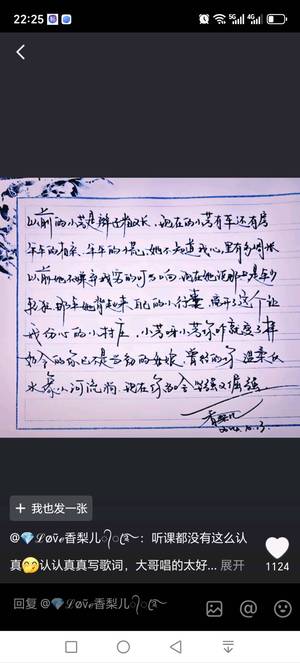 22:25
5G
4G
以前的小芳是辫子粗又长.现在的小芳有车还有房
年年的指望.年年的十几.她不知道我心里有多惆怅
以前她不嫌弃我穷的叮当响.现在她说那只是年少
轻狂.那年她背起来自己的小行囊 离开了这个让
我伤心的小村庄. 小芳呀小芳你咋就变了样
如今的你已不是当初的姑娘 曾经的你温柔似
水象小河流淌.现在你
香梨儿
+ 我也发一张
@💎ℒℴѵℯ香梨儿：听课都没有这么认
真😋认认真真写歌词，大哥唱的太好... 展开
1124
回复 @💎ℒℴѵℯ香梨儿